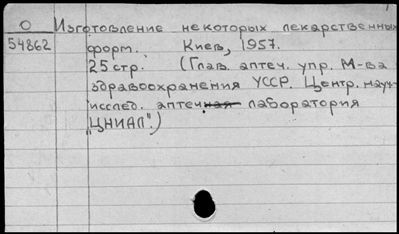 О Изготовление некоторых лекарственных
54862 форм. Киев, 1957.
25 стр. (Глав. аптеч. упр. М-ва
здравоохранения УССР. Центр. науч-
исслед. аптечная лаборатория
"ЦНИАЛ".)